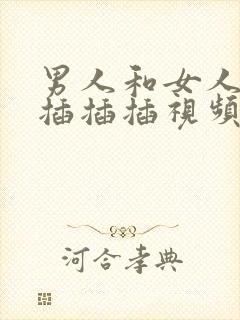 男人和女人
插插插視頻
河合孝典